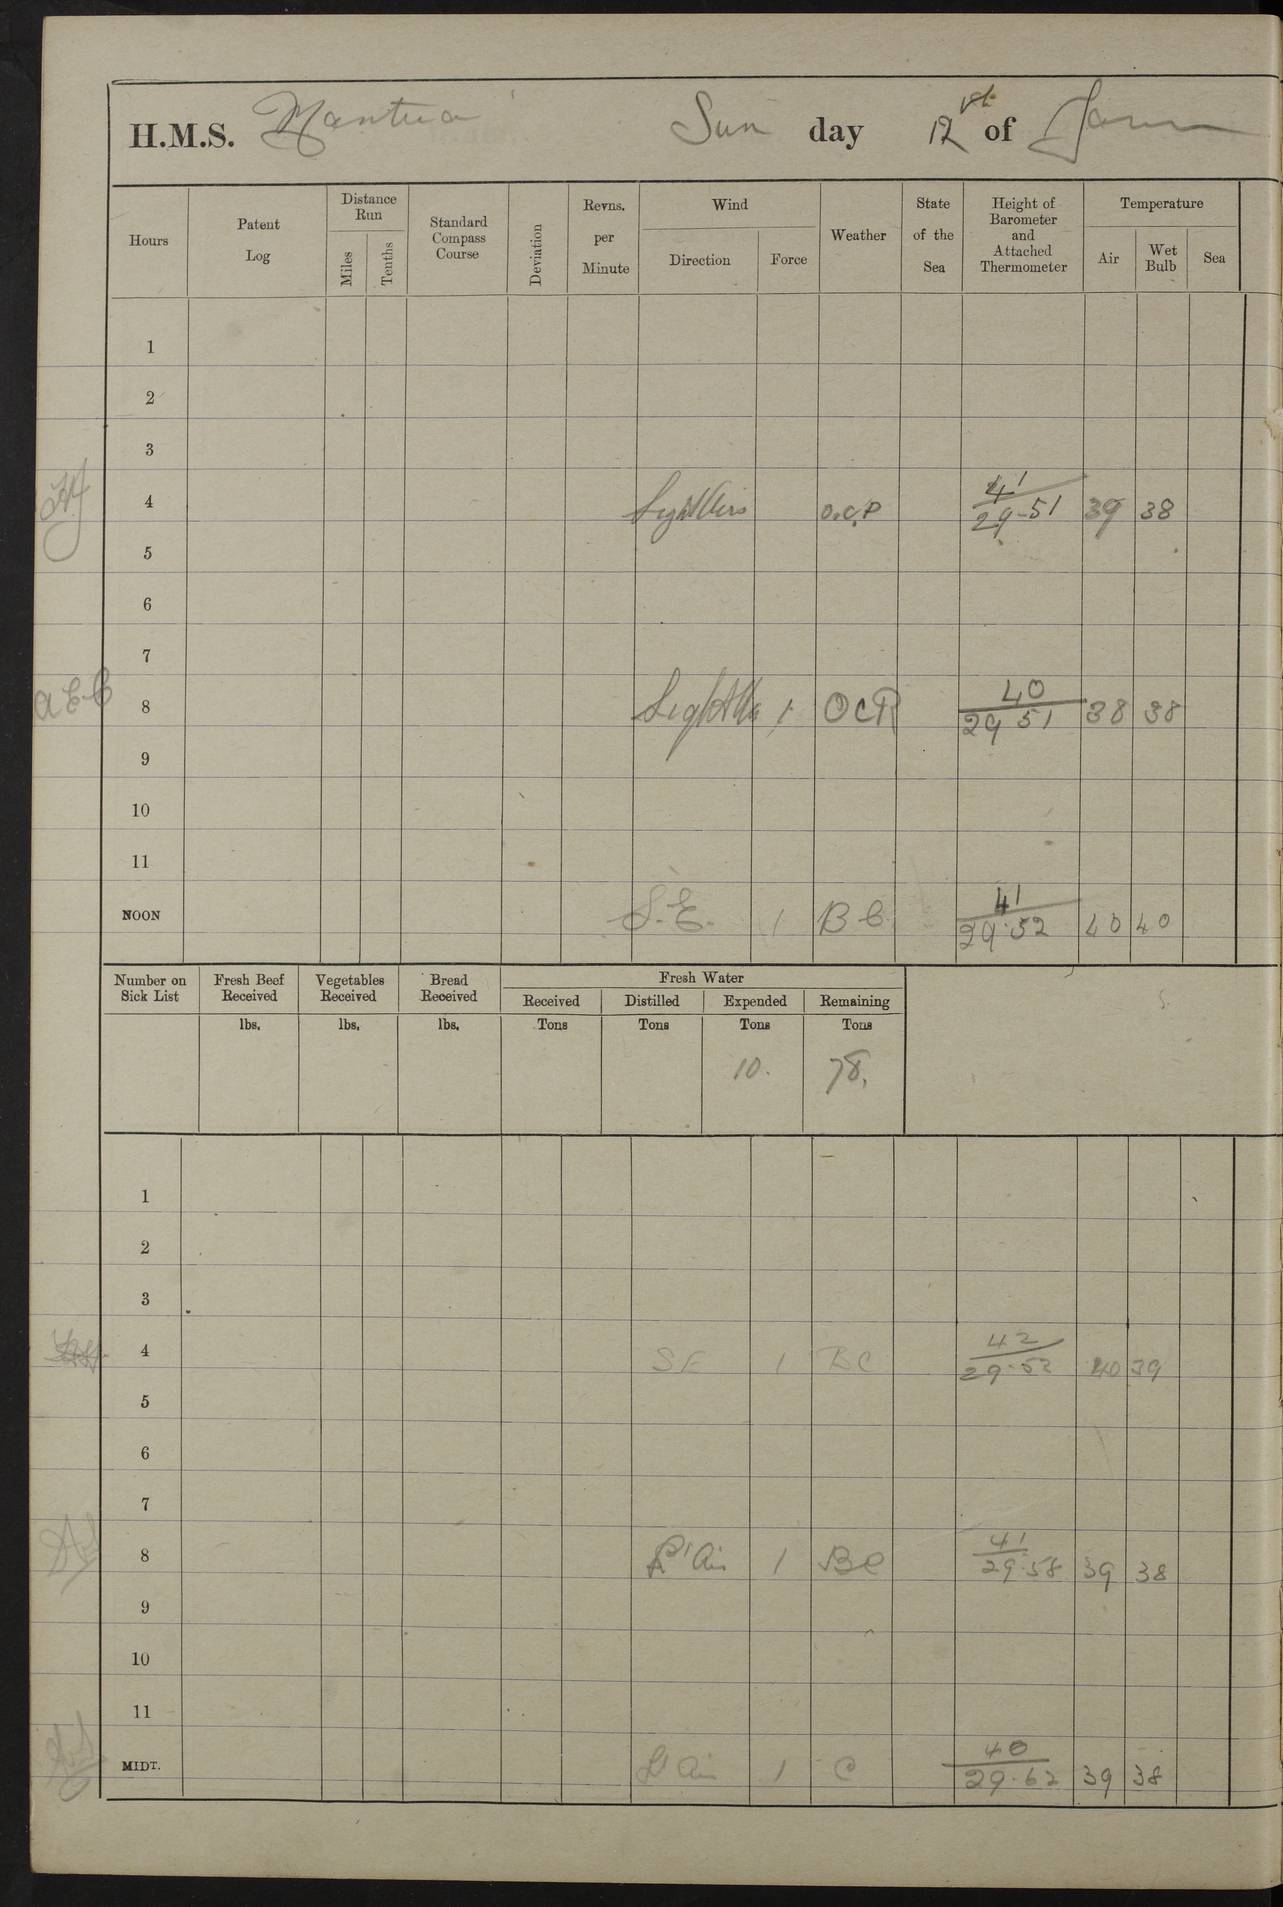 H.M.S. Mantua Sun day 12th of
Hours Patent Log Distance Run Miles Tenths Standard Compass Course Deviation Revns. per Minute Wind Direction Force Weather State of the Sea Height of Barometer and Attached Thermometer Temperature Air Wet Bulb Sea
1
2
3
4 Light Airs O.C.P 41 29-51 39 38
5
6
7
AEC 8 Light Airs 1 OCR 40 29 51 38 38
9
10
11
NOON S.E. 1 BC 41 29.52 40 40
Number on Sick List Fresh Beef Received Vegetables Received Bread Received Fresh Water Received Distilled Expended Remaining
lbs. lbs. lbs. Tons Tons Tons Tons
10. 78.
1
2
3
4 SE 1 BC 42 29.52 40 39
5
6
7
8 Lt Air 1 BC 41 29.58 39 38
9
10
11
MIDT. Lt Air 1 C 40 29.62 39 38